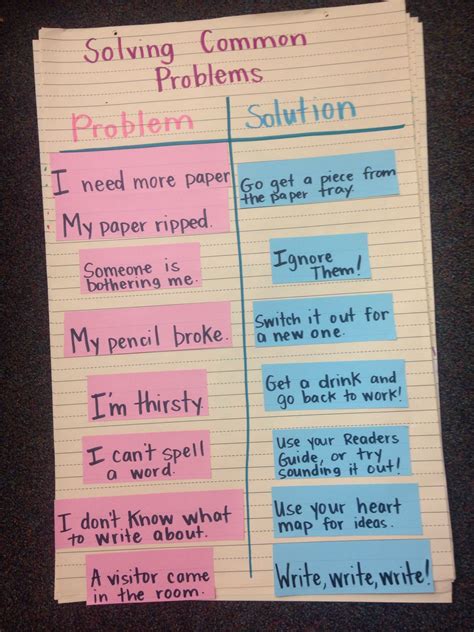 Solving Common
Problems
Problem
Solution
I need more paper
My paper ripped.
Go get a piece from
the paper tray.
Someone is
bothering me.
Ignore
Them!
My pencil broke.
Switch it out for
a new one.
I'm thirsty.
Get a drink and
go back to work!
I can't spell
a word.
Use your Readers
Guide, or try
sounding it out!
I don't know what
to write about.
Use your heart
map for ideas.
A visitor came
in the room.
Write, write, write!